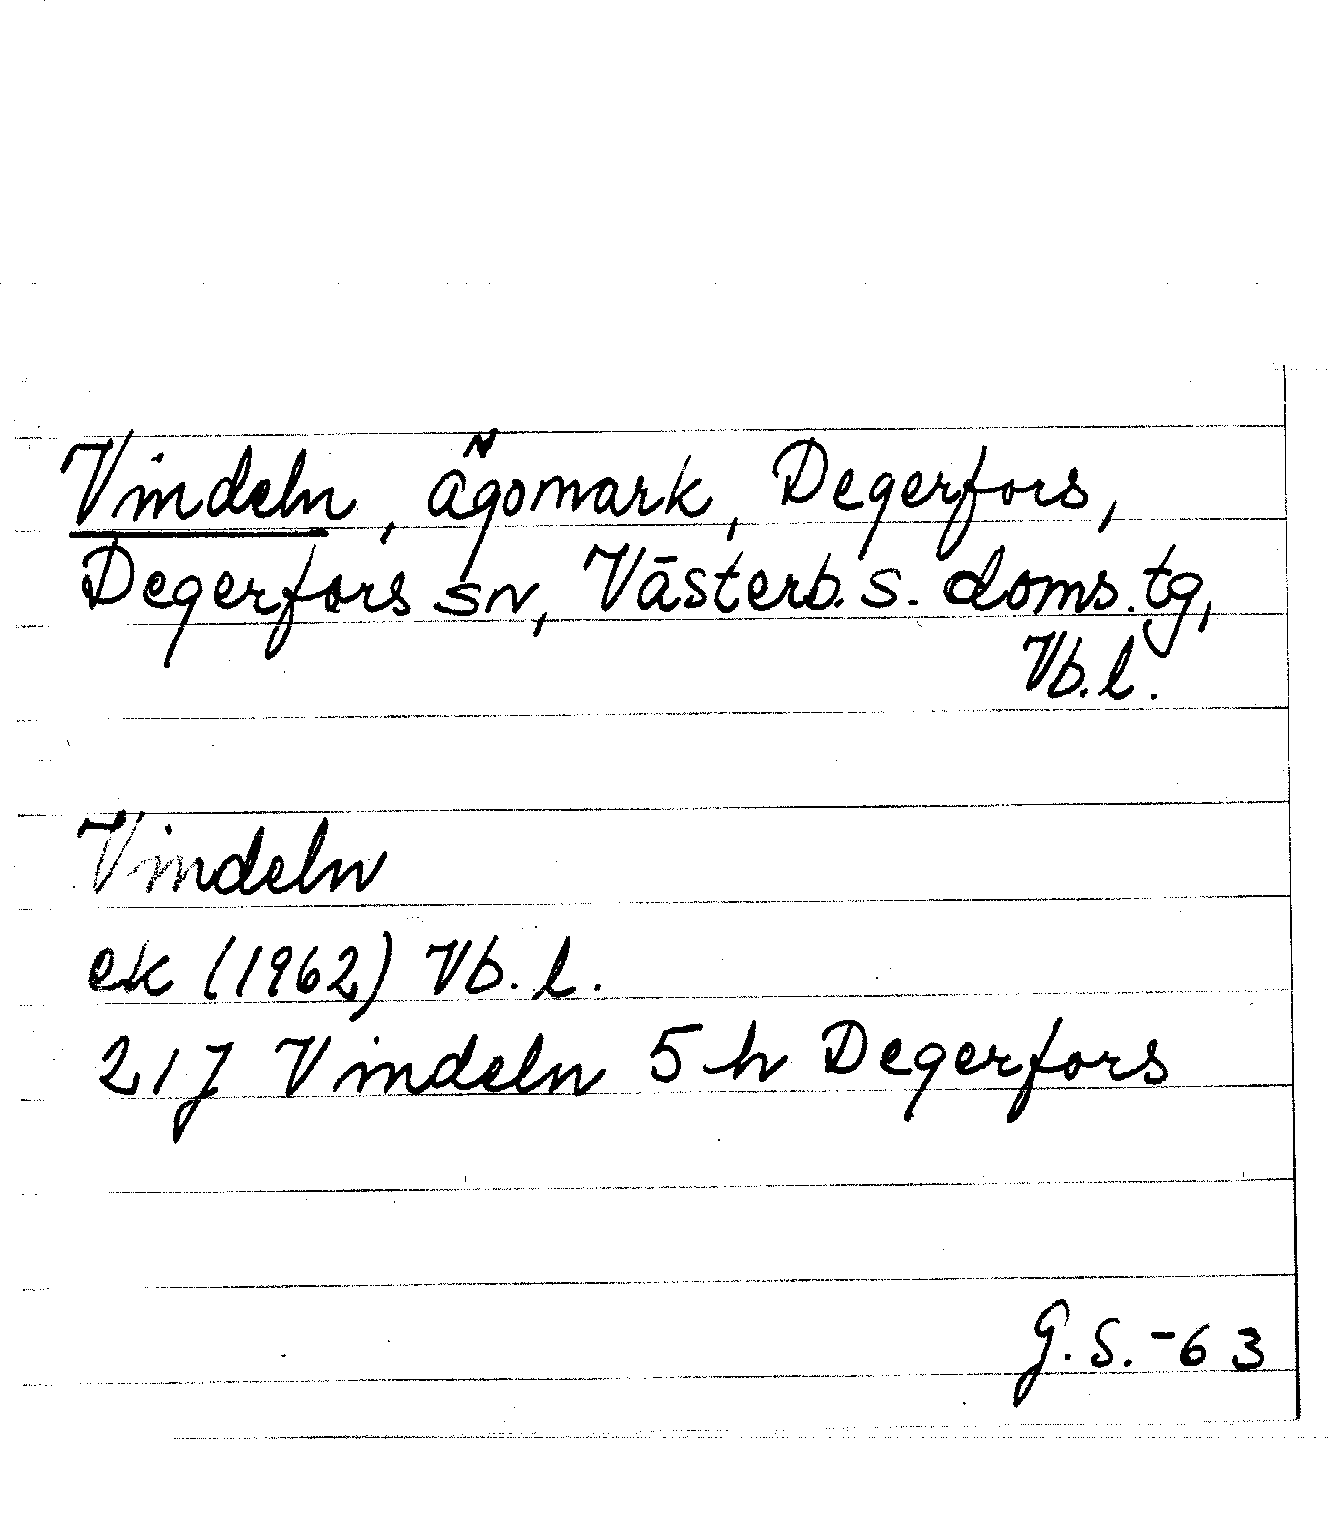 Vindeln, ägomark, Degerfors,
Degerfors sn, Västerb. s. doms. tg,
Vb. l.
Vindeln
ek (1962) Vb. l.
21J Vindeln 5 h Degerfors
G. S. -63